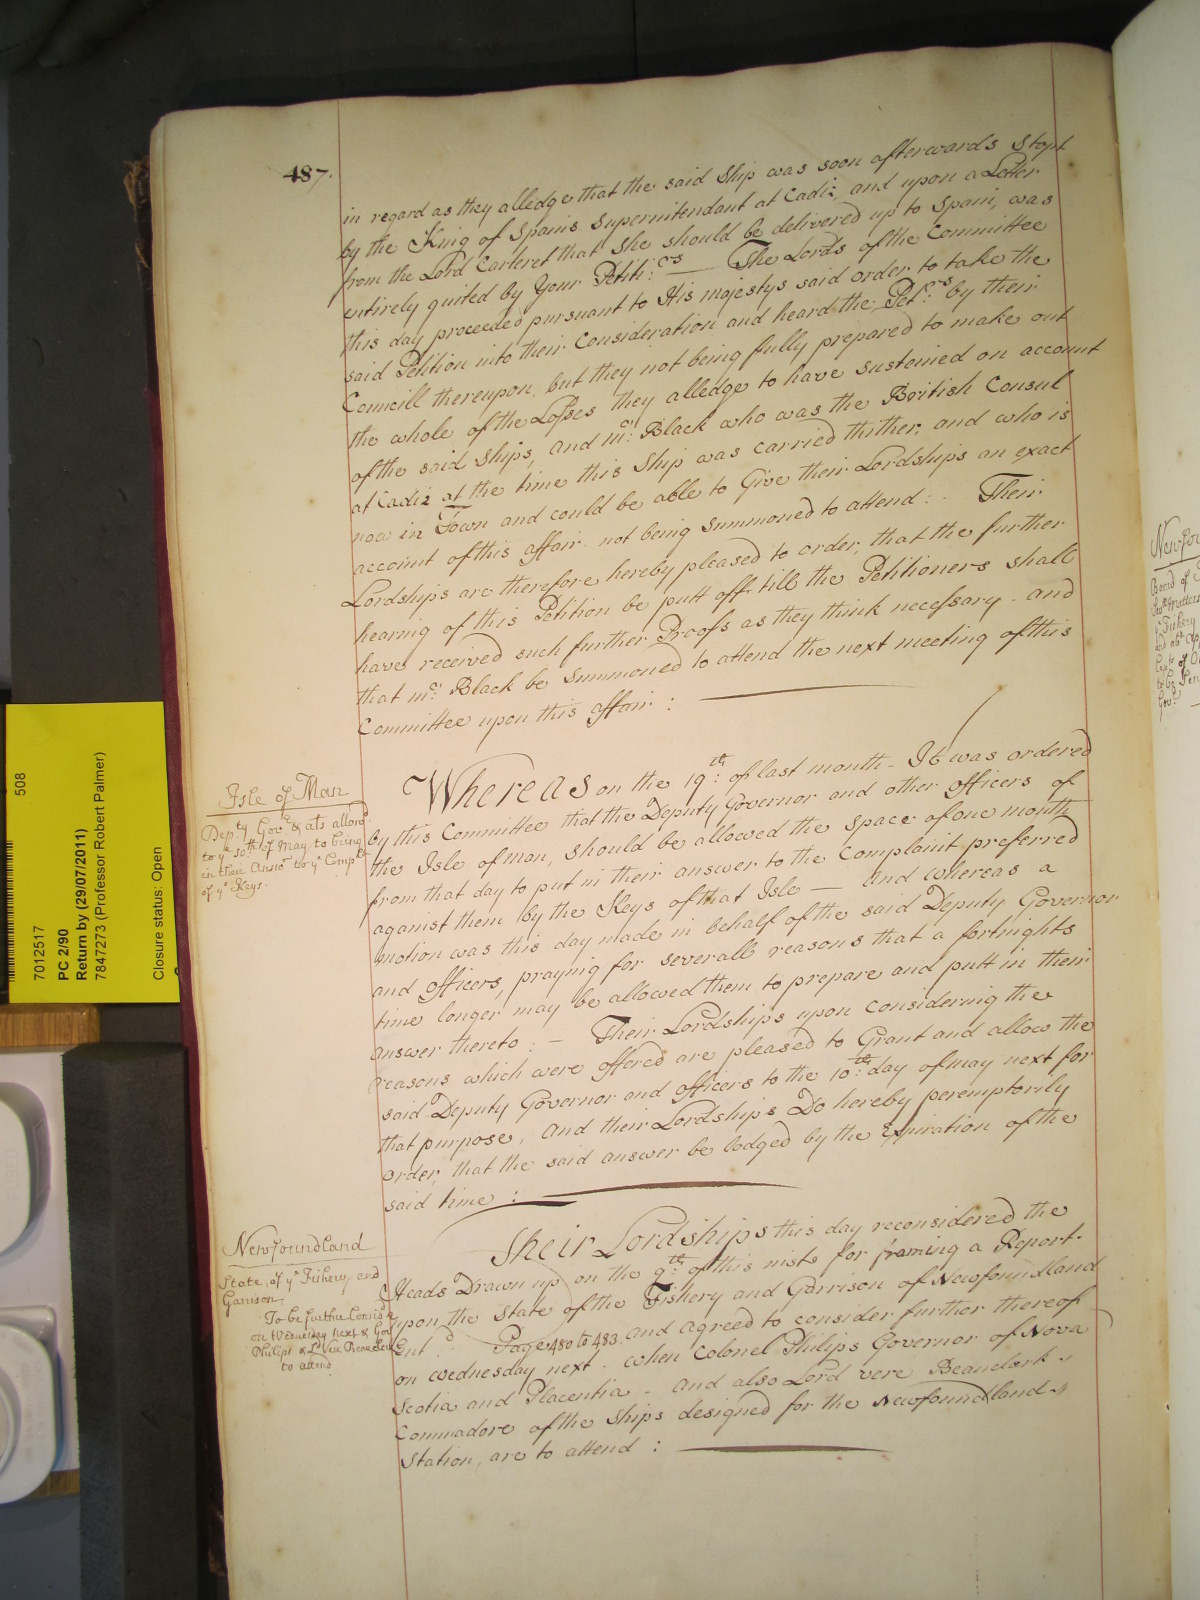 487.
in regard as they alledge that the said Ship was soon afterwards Stopt
by the King of Spains Superintendant at Cadiz, and upon a Letter
from the Lord Carteret that She should be delivered up to Spain, was
entirely quited by Your Petitrs: — The Lords of the Committee
this day proceeded pursuant to His majestys said order to take the
said Petition into their Consideration and heard the Petrs: by their
Councill thereupon, but they not being fully prepared to make out
the whole of the Losses they alledge to have susteined on account
of the said Ships, and mr: Black who was the British Consul
at Cadiz at the time this Ship was carried thither, and who is
now in Town and could be able to Give their Lordships an exact
account of this affair not being Summoned to attend: Their
Lordships are therefore hereby pleased to order, that the further
hearing of this Petition be putt off till the Petitioners shall
have received such further Proofs as they think necessary and
that mr: Black be Summoned to attend the next meeting of this
Committee upon this affair:
Isle of Man
Depty Govr & ats allowd
to ye 10th of May to bring
in their Answr to ye Complt
of ye Keys.
Whereas on the 19th: of last month It was ordered
by this Committee that the Deputy Governor and other officers of
the Isle of man, should be allowed the space of one month
from that day to put in their answer to the Complaint preferred
against them by the Keys of that Isle — And whereas a
motion was this day made in behalf of the said Deputy Governor
and officers, praying for severall reasons that a fortnights
time longer may be allowed them to prepare and putt in their
answer thereto: — Their Lordships upon considering the
reasons which were offered are pleased to Grant and allow the
said Deputy Governor and officers to the 10th: day of may next for
that purpose, And their Lordships Do hereby peremptorily
order, that the said answer be lodged by the Expiration of the
said time:
Newfoundland
State, of ye Fishery, and
Garrison,
To be further Considd
on Wednesday next & Govr
Philips & Ld Vere Beauclerk
to attend
Their Lordships this day reconsidered the
Heads Drawn up on the 9th: of this inst for framing a Report
upon the State of the Fishery and Garrison of Newfoundland
Entd: Page 480 to 483. and agreed to consider further thereof
on wednesday next when Colonel Philips Governor of Nova
Scotia and Placentia and also Lord vere Beauclerk
Commadore of the Ships designed for the Newfoundland
Station, are to attend:
508
7012517
PC 2/90
Return by (29/07/2011)
7847273 (Professor Robert Palmer)
Closure status: Open
Newfou
Board of
Fishery